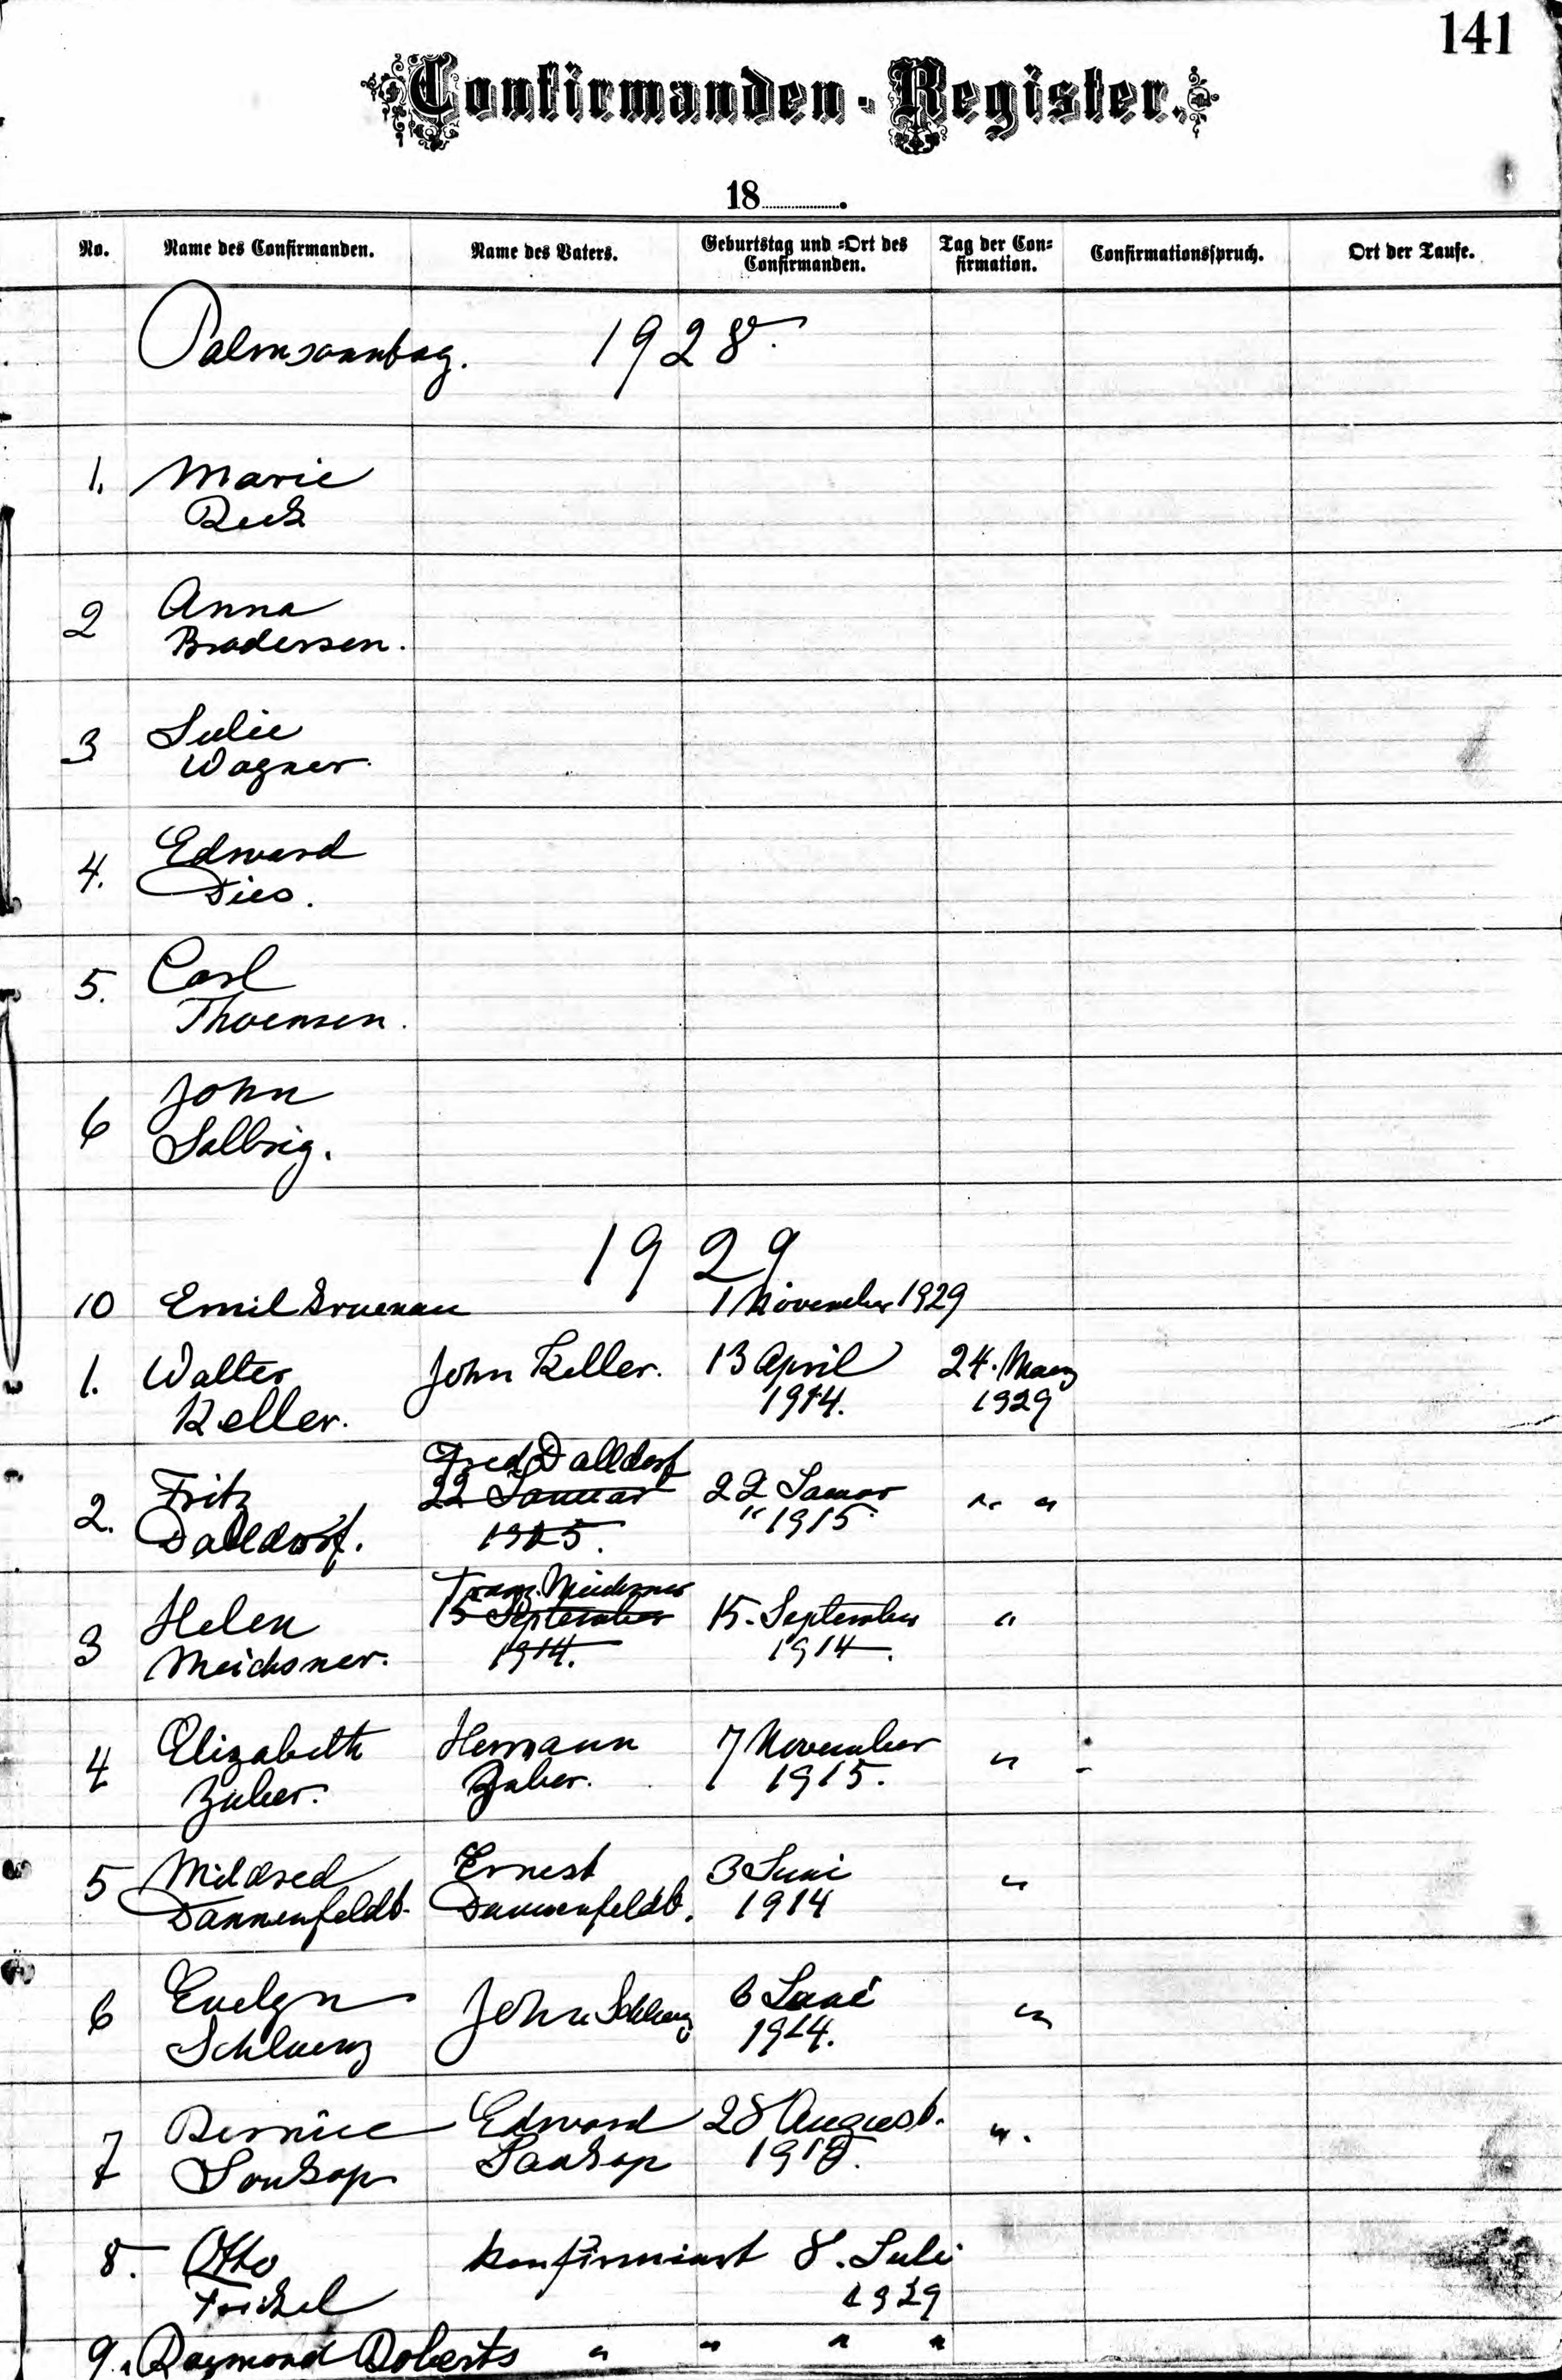 141
Confirmanden-Register.
18........
No. Name des Confirmanden. Name des Vaters. Geburtstag und =Ort des Confirmanden. Tag der Con=firmation. Confirmationsspruch. Ort der Taufe.
Palmsonntag. 1928.
1. Marie
2 Anna
Brodersen.
3 Julie
Wagner.
4. Edward
Dies.
5. Carl
Thoensen.
6 John
Salbrig.
1929
10 Emil Gruenau 1 November 1929
1. Walter John Keller. 13 April 24. Maerz
Keller. 1914. 1929
Fred Dalldorf
2. Fritz 22 Januar 22 Januar " "
Dalldorf. 1915. " 1915.
Franz Meichsner
3 Helen 15 September 15. September "
Meichsner. 1914. 1914.
4 Elizabeth Hermann 7 November "
Zuber. Zuber. 1915.
5 Mildred Ernest 3 Juni "
Dannenfeldt. Dannenfeldt. 1914
6 Evelyn John Schluenz 6 Juni "
Schluenz 1914.
7 Bernice Edward 28 August. ".
Soukop Soukop
8. Otto konfirmiert 8. Juli
1929
9. Raymond Roberts " " " "